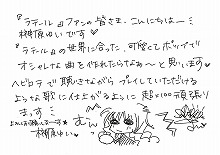 『ラテール』ファンの皆さま、こんにちはー！
榊原ゆいです♡
『ラテール』の世界に合った、可愛くてポップで
オシャレな曲を作れたらなぁ〜と思います♡
ヘビロテで聴きながらプレイしていただける
ような歌に仕上がるように 超×100頑張り
まっす！
榊原ゆい♡